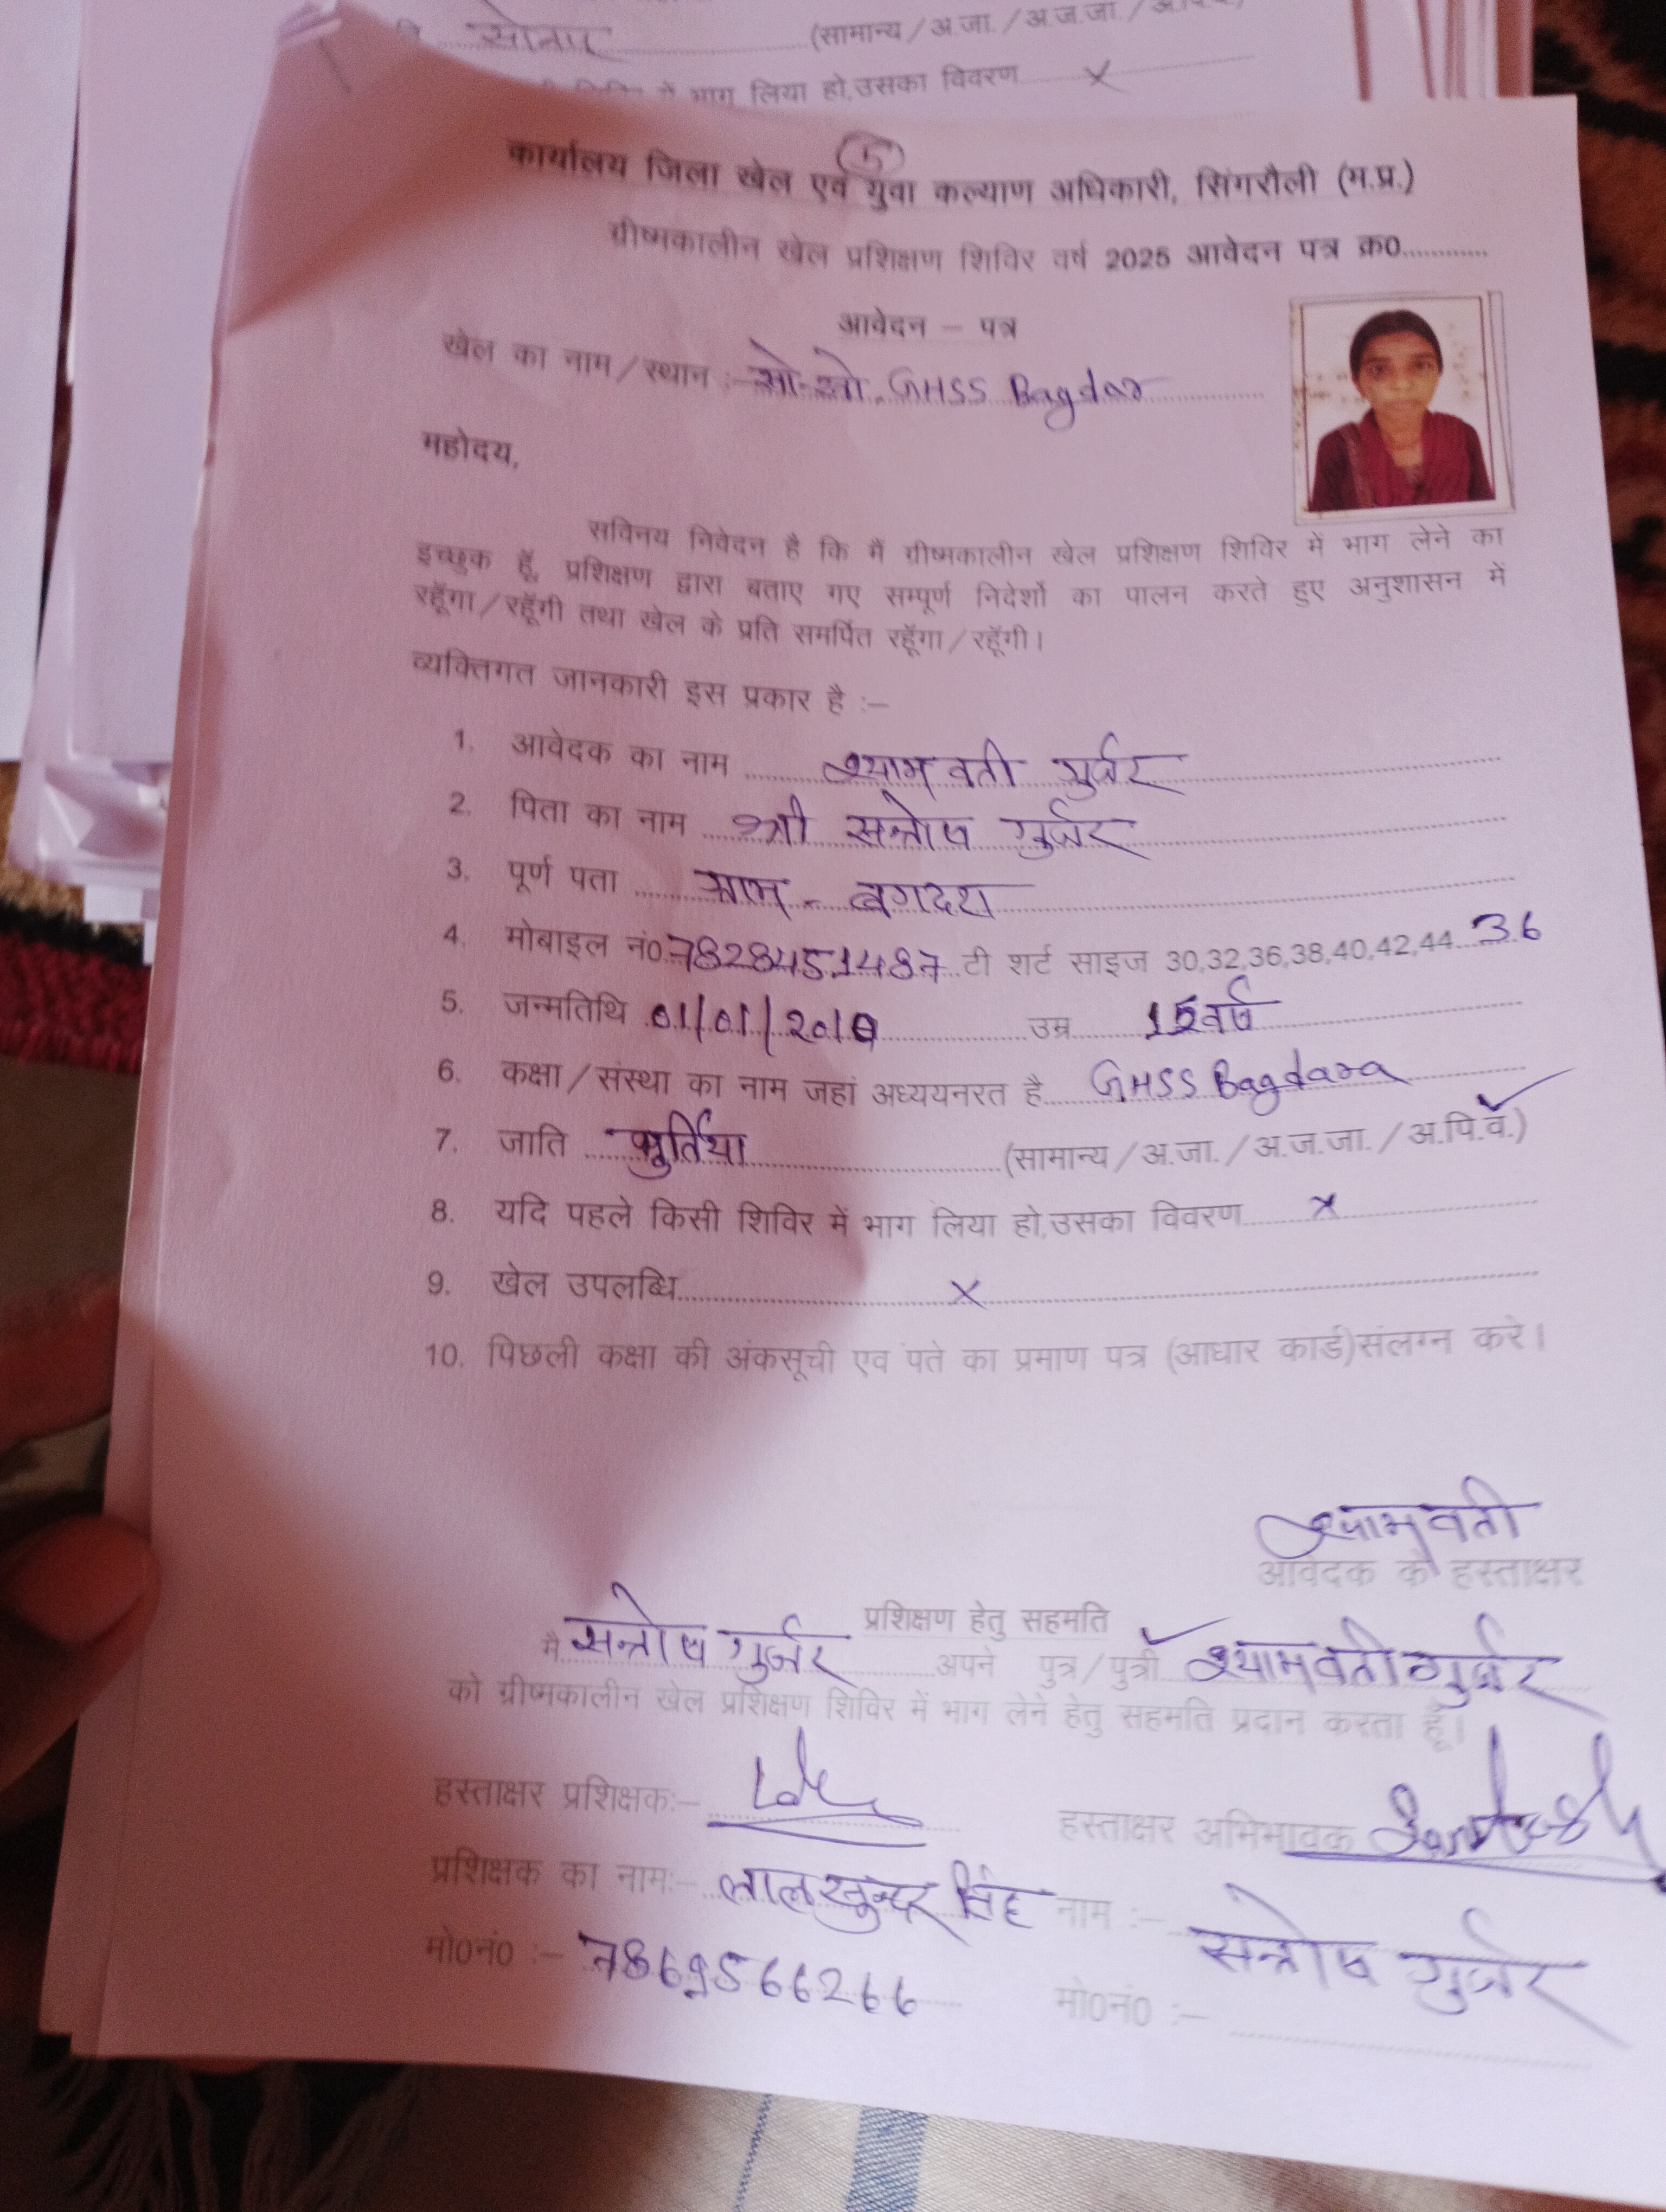 सोनार (सामान्य/अ.जा./अ.ज.जा./
में भाग लिया हो,उसका विवरण x
5
कार्यालय जिला खेल एवं युवा कल्याण अधिकारी, सिंगरौली (म.प्र.)
ग्रीष्मकालीन खेल प्रशिक्षण शिविर वर्ष 2025 आवेदन पत्र क्र0.............
आवेदन – पत्र
खेल का नाम/स्थान :– खो-खो. GHSS Bagdar
महोदय,
सविनय निवेदन है कि मैं ग्रीष्मकालीन खेल प्रशिक्षण शिविर में भाग लेने का
इच्छुक हूँ, प्रशिक्षण द्वारा बताए गए सम्पूर्ण निदेर्शो का पालन करते हुए अनुशासन में
रहूँगा/रहूँगी तथा खेल के प्रति समर्पित रहूँगा/रहूँगी।
व्यक्तिगत जानकारी इस प्रकार है :–
1. आवेदक का नाम श्यामवती गुर्जर
2. पिता का नाम श्री सन्तोष गुर्जर
3. पूर्ण पता ग्राम - बगदरा
4. मोबाइल नं0 7828451487 टी शर्ट साइज 30,32,36,38,40,42,44 36
5. जन्मतिथि 01/01/2010 उम्र 15 वर्ष
6. कक्षा/संस्था का नाम जहां अध्ययनरत है GHSS Bagdara
7. जाति (सामान्य/अ.जा./अ.ज.जा./अ.पि.व.) ✓
8. यदि पहले किसी शिविर में भाग लिया हो,उसका विवरण x
9. खेल उपलब्धि x
10. पिछली कक्षा की अंकसूची एव पते का प्रमाण पत्र (आधार कार्ड)संलग्न करे।
श्यामवती
आवेदक के हस्ताक्षर
प्रशिक्षण हेतु सहमति
मै सन्तोष गुर्जर अपने पुत्र/पुत्री ✓ श्यामवती गुर्जर
को ग्रीष्मकालीन खेल प्रशिक्षण शिविर में भाग लेने हेतु सहमति प्रदान करता हूँ।
हस्ताक्षर प्रशिक्षक:– हस्ताक्षर अभिभावक Santosh
प्रशिक्षक का नाम:– लालसुन्दर सिंह नाम :– सन्तोष गुर्जर
मो0नं0 :– 7869566266 मो0नं0 :–